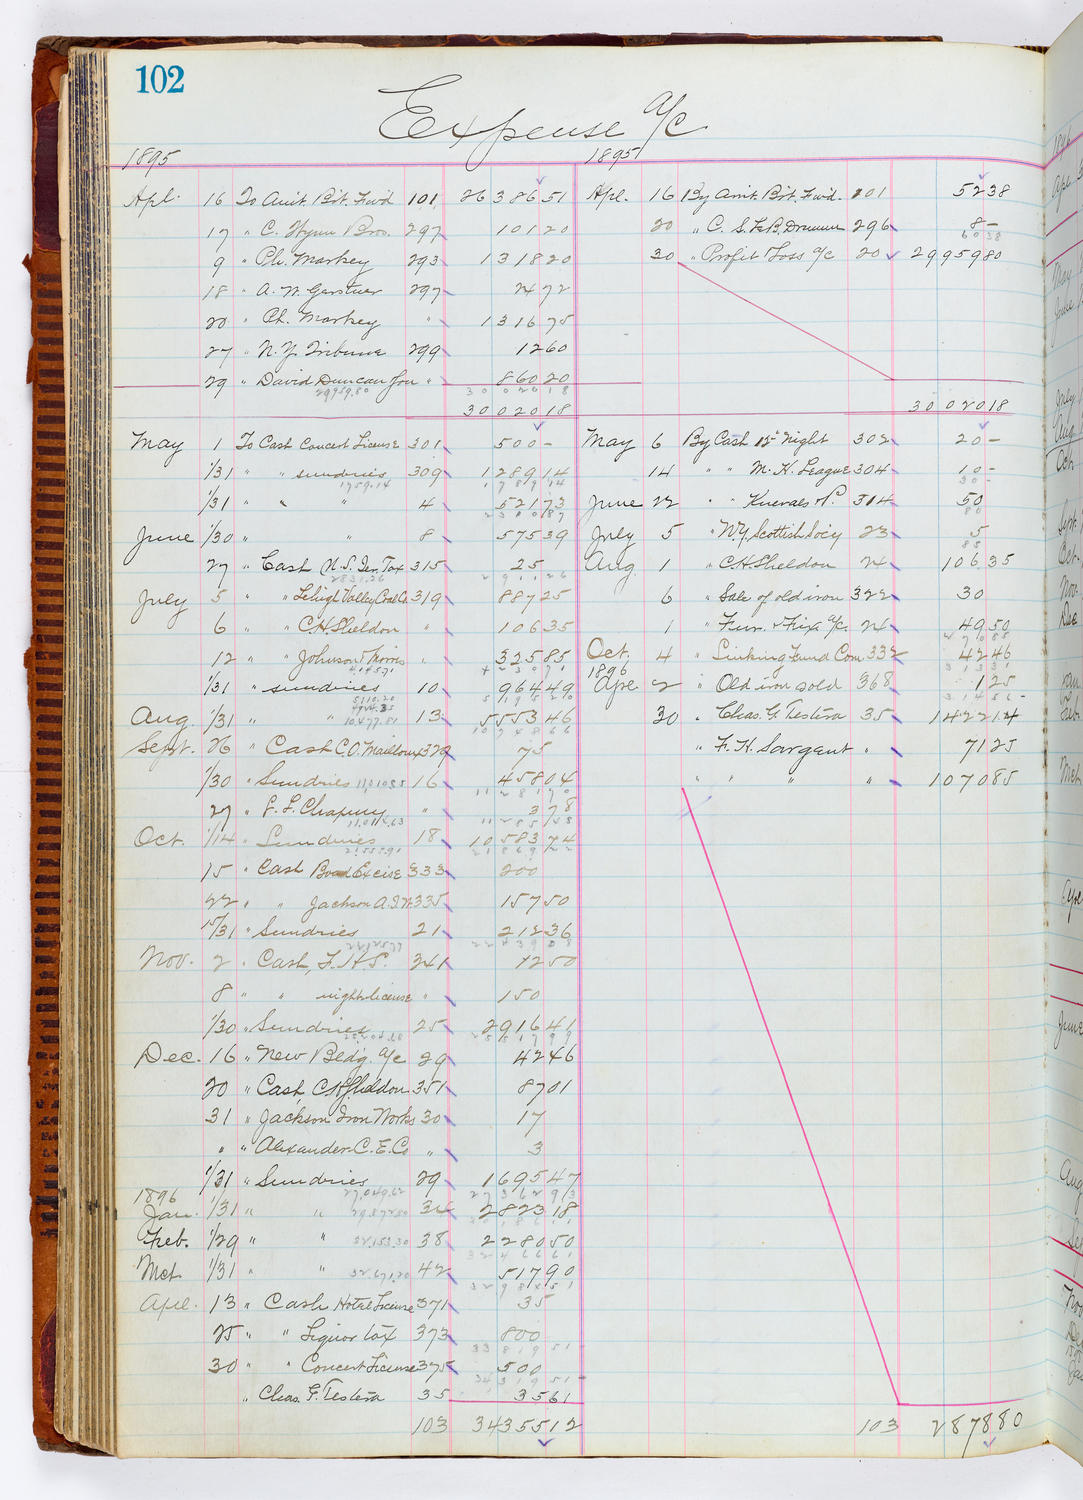 102
Expense a/c
1895 1895
Apl. 16 To Amt. Brt. Fwd 101 26386 51 Apl. 16 By Amt. Brt. Fwd. 101 52 38
17 " C. Wynn Bros. 297 101 20 20 " C. S. & B. 296 8 –
60 38
9 " Ph. Markey 293 1318 20 30 " Profit Loss a/c 20 29959 80
18 " A. W. Gerstner 297 24 72
20 " Ph. Markey " 1316 75
27 " N. Y. Tribune 299 12 60
29 " David Duncan Jou " 860 20
29959.80 30020 18
30020 18 30020 18
May 1 To Cash Concert License 301 500 – May 6 By Cash 15" Night 302 20 –
1/31 " " sundries 309 1289 14 14 " " M. H. League 304 10 –
1759.14 1789 14 30 –
1/31 " " 4 521 73 June 22 " " 314 50
2310 87 80
June 1/30 " " 8 575 39 July 5 " N.Y. Scottish Socy 23 5
85
27 " Cash U. S. Ter. Tax 315 25 Aug. 1 " C. H. Sheldon 24 106 35
2831.26 2911 26
July 5 " " Lehigh Valley Coal Co 319 887 25 6 " Sale of old iron 322 30
6 " " C. H. Sheldon " 106 35 1 " Furn. & Fix. a/c. 24 49 50
12 " " Johnson & Morris " 325 85 Oct. 4 " Sinking Fund Com 332 42 46
1896
1/31 " sundries 10 964 49 Apr 2 " Old iron sold 368 1 25
5110.20 5195 20 314 56 –
Aug. 1/31 " " 13 5553 46 30 " Chas. F. Testera 35 1422 14
10.477.81 10748 66
Sept. 26 " Cash C. O. Mailloux 329 75 " F. H. Sargent " 71 25
1/30 " Sundries 16 458 04 " " " " 1070 85
27 " E. L. Chapury " 3 78
Oct. 1/14 " Sundries 18 10583 74
15 " Cash Board Excise 333 200
22 " " Jackson A. I. W. 335 157 50
15/31 " Sundries 21 212 36
22439 08
Nov. 2 " Cash, F. H. S. 341 12 50
8 " " night license " 150
1/30 " Sundries 25 2916 41
Dec. 16 " New Bldg. a/c 29 42 46
20 " Cash, C. H. Sheldon 351 87 01
31 " Jackson Iron Works 30 17
" " Alexander C. E. Co " 3
1/31 " Sundries 29 1695 47
1896 27,049.62 27362 93
Jan. 1/31 " " 29.872.80 34 2823 18
Feb. 1/29 " " 32,153.30 38 2280 50
32466 61
Mch 1/31 " " 32.671.20 42 517 90
32984 51
Apr. 13 " Cash Hotel License 371 35
25 " " Liquor tax 373 800
33819 51 –
30 " " Concert License 375 500
34319 51 –
" Chas. F. Testera 35 35 61
103 34355 12 103 2878 80